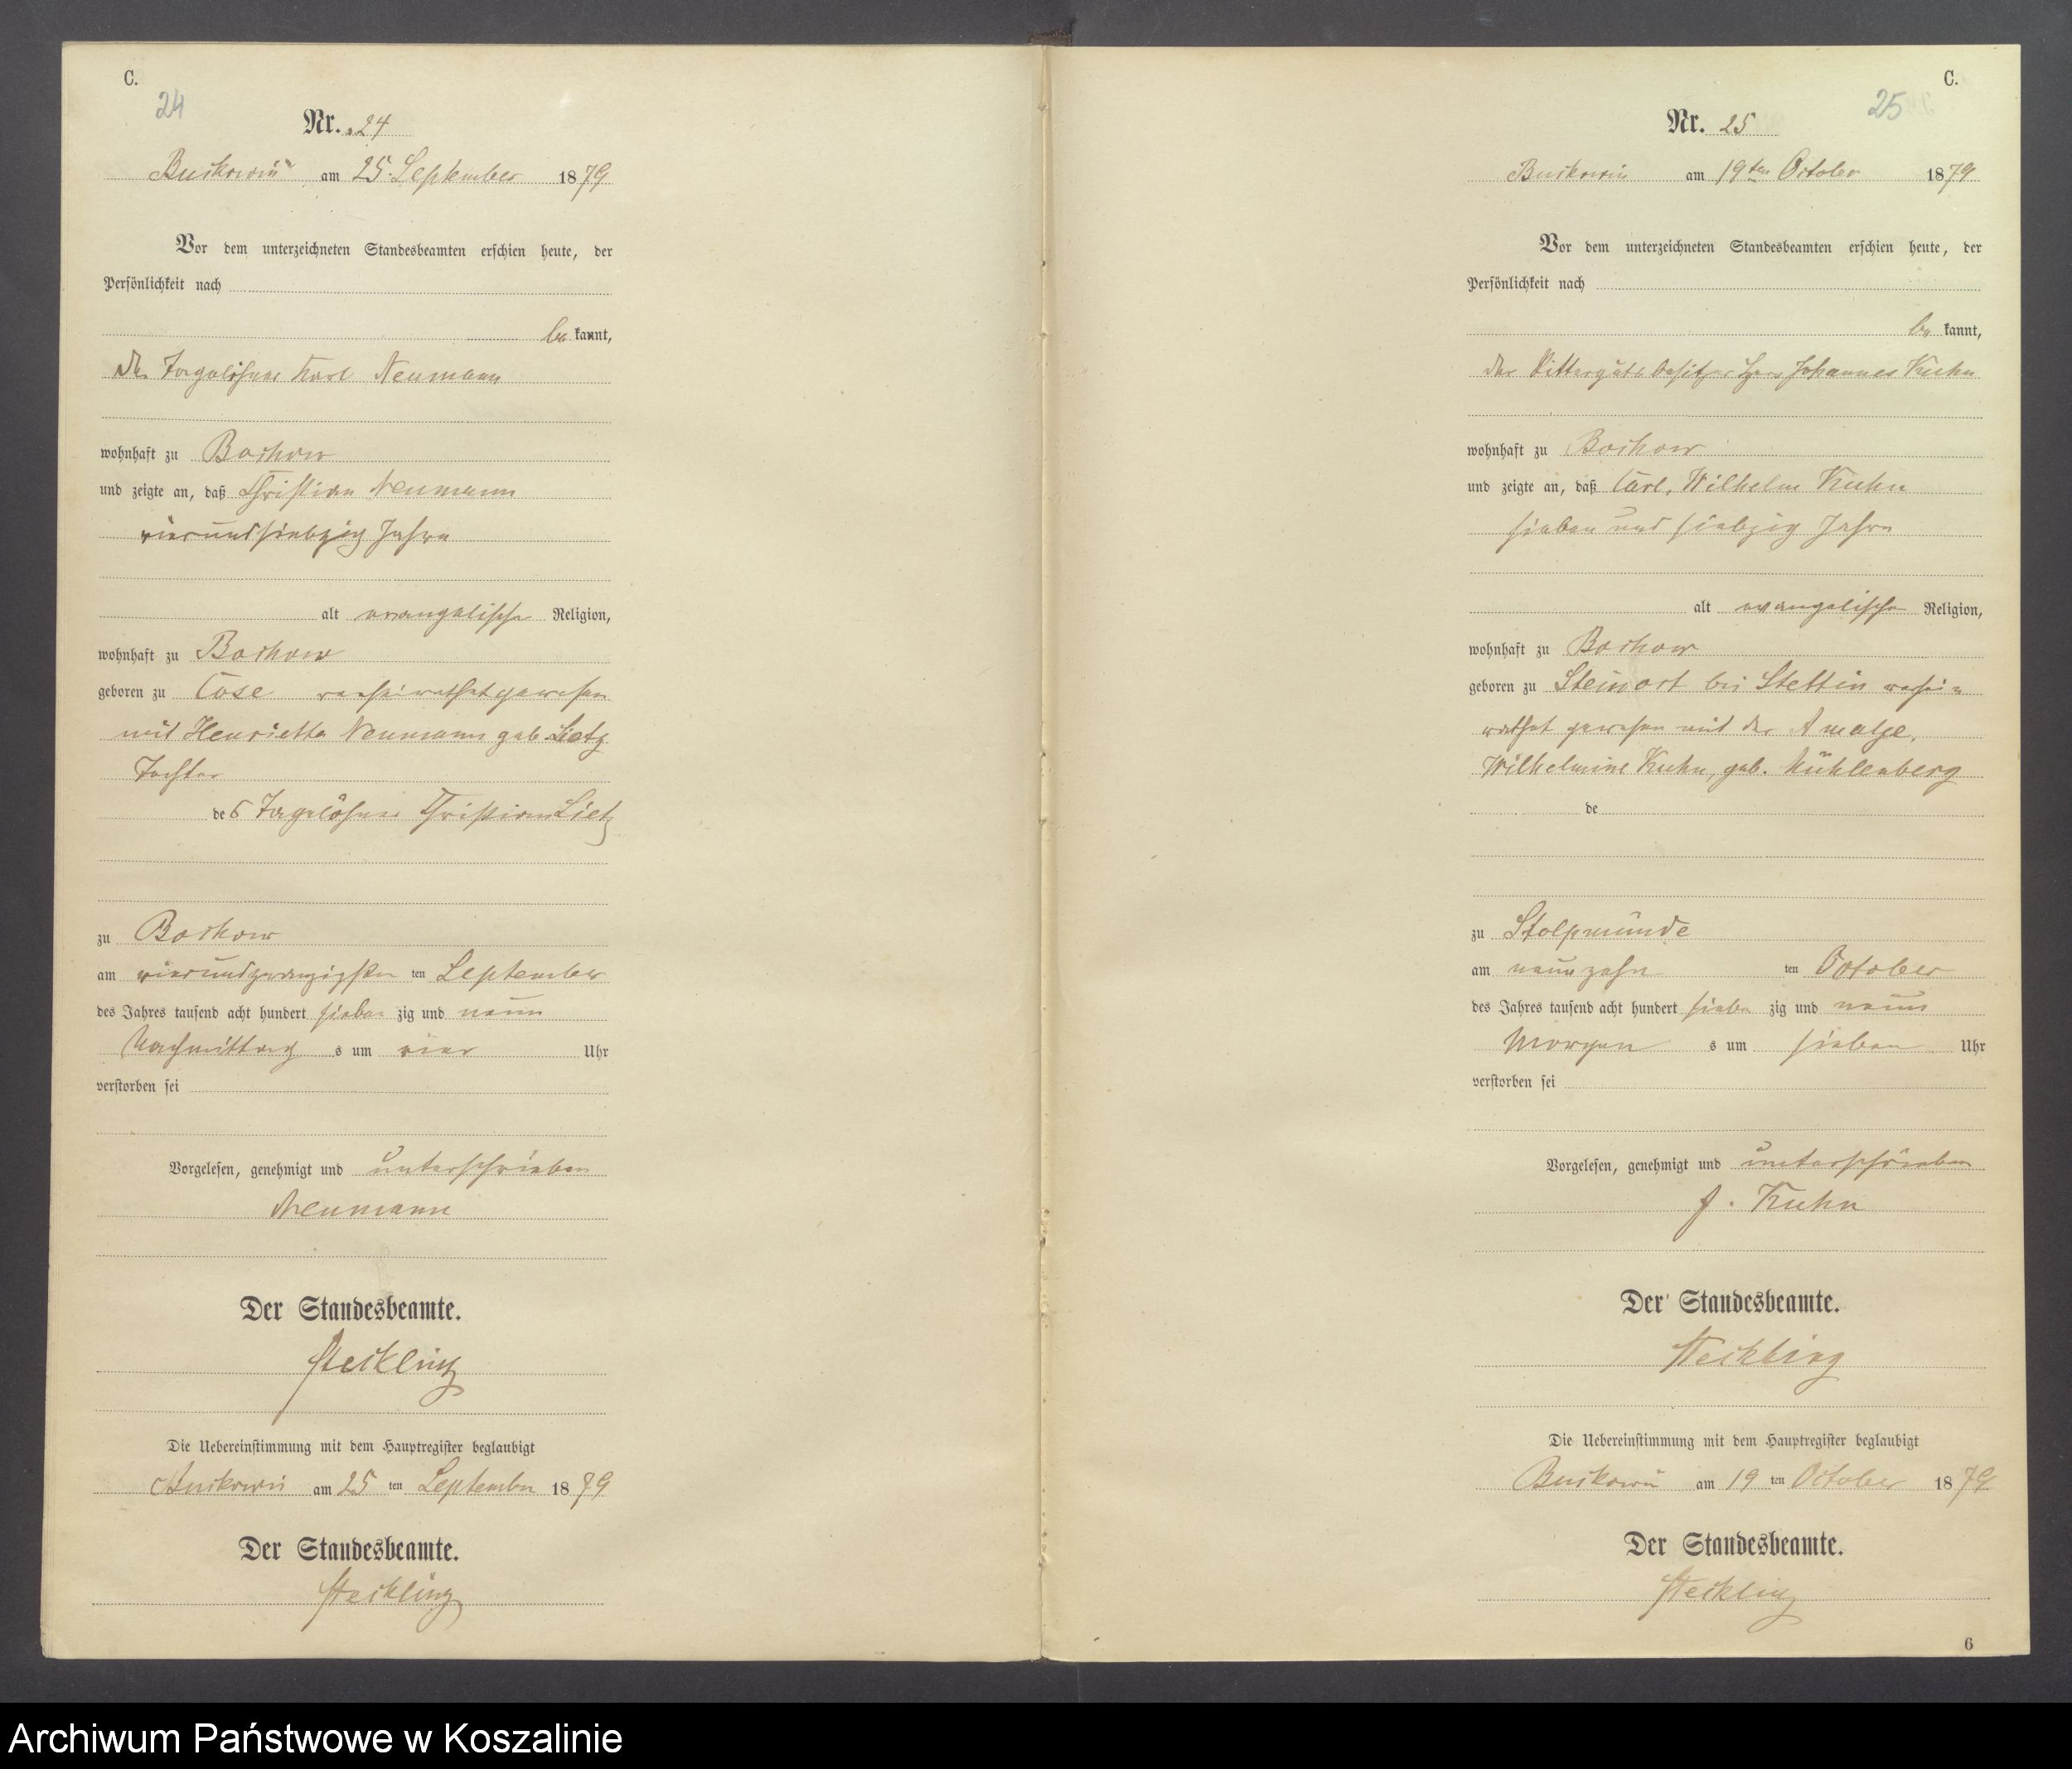 C.
24
Nr. 24
Buckowin am 25. September 1879
Vor dem unterzeichneten Standesbeamten erschien heute, der
Persönlichkeit nach
be kannt,
der Tagelöhner Karl Neumann
wohnhaft zu Bochow
und zeigte an, daß Christian Neumann
vierundsiebzig Jahre
alt evangelischer Religion,
wohnhaft zu Bochow
geboren zu Cose verheirathet gewesen
mit Henriette Neumann geb. Lietz
Tochter
des Tagelöhner Christian Lietz
zu Bochow
am vierundzwanzigsten ten September
des Jahres tausend acht hundert sieben zig und neun
Nachmittag s um vier Uhr
verstorben sei
Vorgelesen, genehmigt und unterschrieben
Neumann
Der Standesbeamte.
Steckling
Die Uebereinstimmung mit dem Hauptregister beglaubigt
Buckowin am 25 ten September 1879
Der Standesbeamte.
Steckling
C.
25
Nr. 25
Buckowin am 19ten October 1879
Vor dem unterzeichneten Standesbeamten erschien heute, der
Persönlichkeit nach
be kannt,
der Rittergutsbesitzer Herr Johannes Kuhn
wohnhaft zu Bochow
und zeigte an, daß Carl, Wilhelm Kuhn
sieben und siebzig Jahre
alt evangelischer Religion,
wohnhaft zu Bochow
geboren zu Steinort bei Stettin verhei=
rathet gewesen mit der
Wilhelmine Kuhn, geb. Mühlenberg
de
zu Stolpmünde
am neunzehn ten October
des Jahres tausend acht hundert sieben zig und neun
Morgen s um sieben Uhr
verstorben sei
Vorgelesen, genehmigt und unterschrieben
J. Kuhn
Der Standesbeamte.
Steckling
Die Uebereinstimmung mit dem Hauptregister beglaubigt
Buckowin am 19 ten October 1879
Der Standesbeamte.
Steckling
6
Archiwum Państwowe w Koszalinie